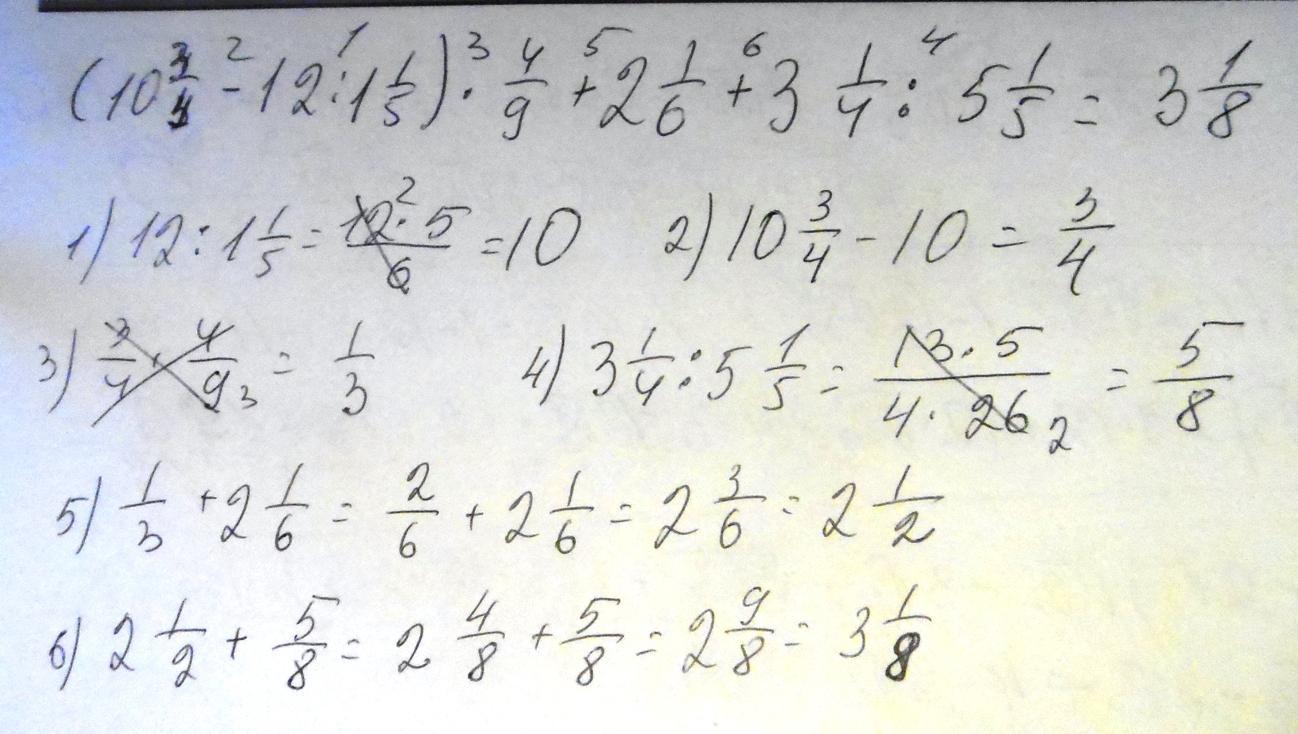 (10 3/4 - 12 : 1 1/5) · 4/9 + 2 1/6 + 3 1/4 : 5 1/5 = 3 1/8
1) 12 : 1 1/5 = 12² · 5/6 = 10 2) 10 3/4 - 10 = 3/4
3) 3/4 · 4/9₃ = 1/3 4) 3 1/4 : 5 1/5 = 13 · 5/4 · 26₂ = 5/8
5) 1/3 + 2 1/6 = 2/6 + 2 1/6 = 2 3/6 = 2 1/2
6) 2 1/2 + 5/8 = 2 4/8 + 5/8 = 2 9/8 = 3 1/8